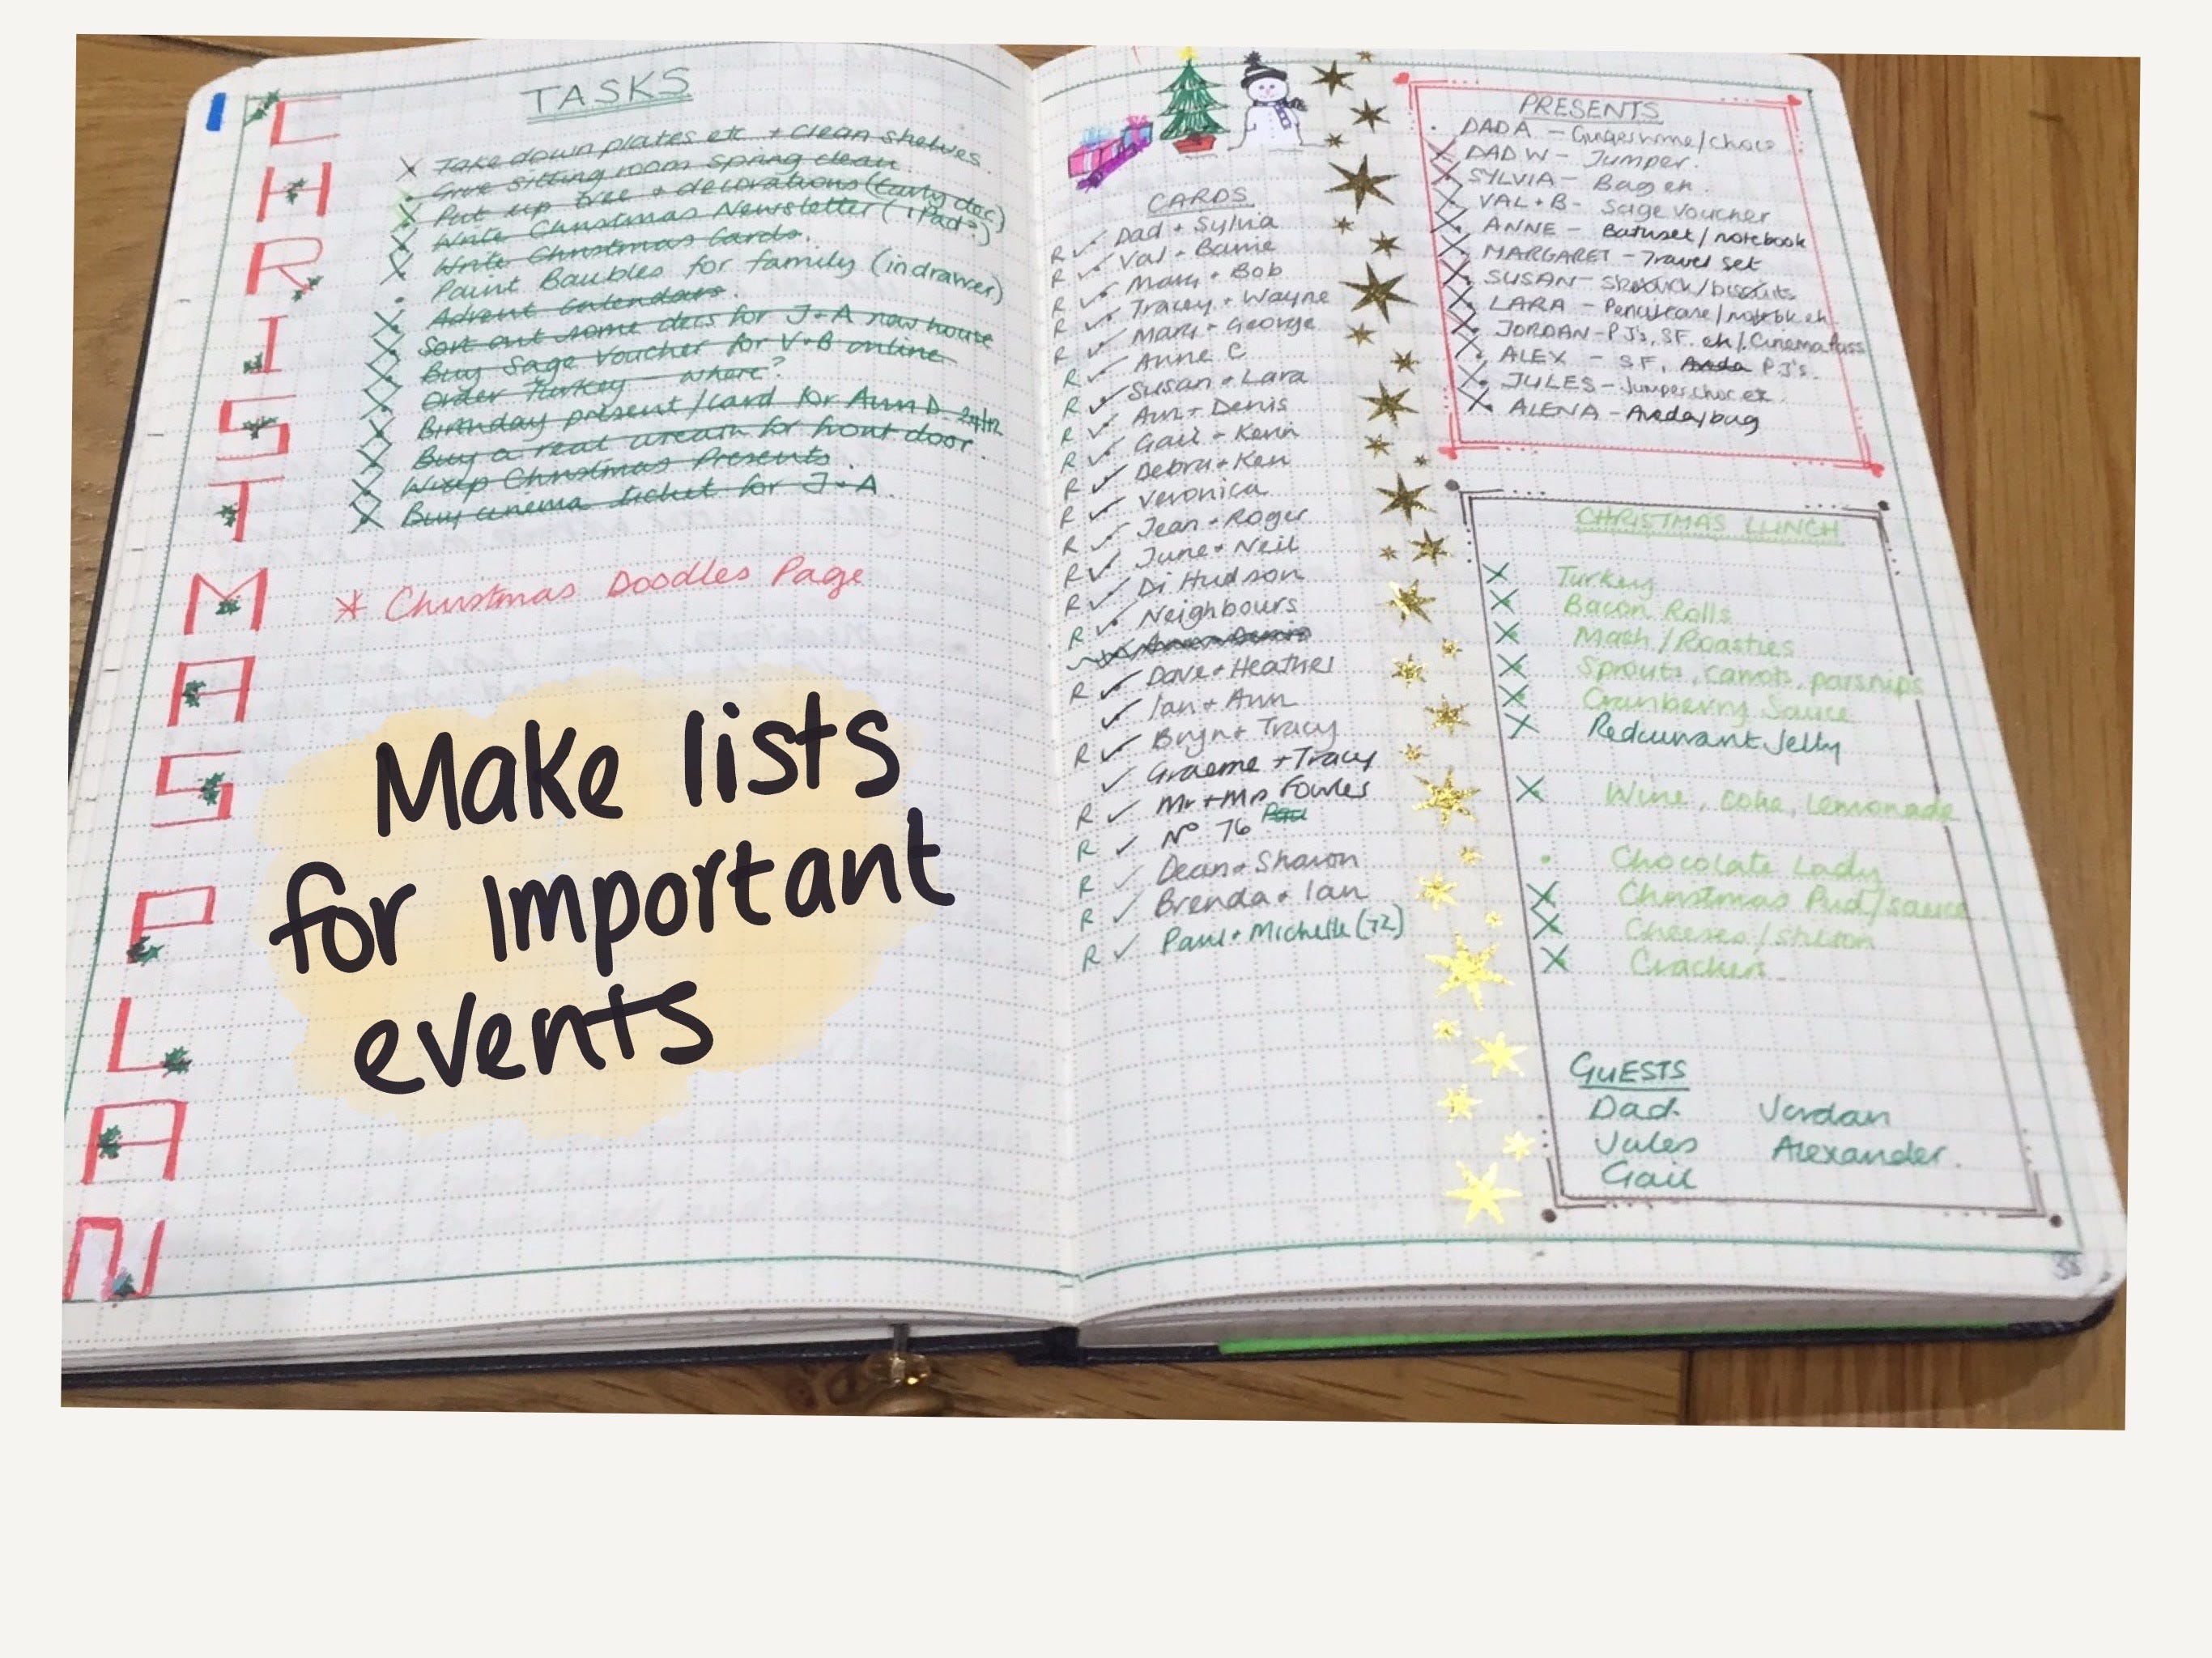 CHRISTMAS PLAN
TASKS
X Take down plates etc + clean shelves.
• Give sitting room spring clean
X Put up tree + decorations (Early dec)
X Write Christmas Newsletter (iPad?)
X Write Christmas Cards.
• Paint Baubles for family (in drawer)
X Advent Calendars.
X Sort out some decs for J+A new house
X Buy Sage Voucher for V+B online
X Order Turkey - where?
X Birthday present/card for Ann D
X Buy a real wreath for front door.
X Wrap Christmas Presents.
X Buy cinema ticket for J+A.
* Christmas Doodles Page
Make lists
for Important
events
CARDS
R ✓ Dad + Sylvia
R ✓ Val + Barrie
R ✓ Mary + Bob
R ✓ Tracey + Wayne
R ✓ Mary + George
R ✓ Anne C
R ✓ Susan + Lara
R ✓ Ann + Denis
R ✓ Gail + Kevin
R ✓ Debra + Ken
R ✓ Veronica
R ✓ Jean + Roger
R ✓ June + Neil
R ✓ Di Hudson
R ✓ Neighbours
R ✓ Dave + Heather
✓ Ian + Ann
R ✓ Bryn + Tracy
✓ Graeme + Tracy
R ✓ Mr + Mrs Fowles
R ✓ No 76
R ✓ Dean + Sharon
R ✓ Brenda + Ian
R ✓ Paul + Michelle (72)
PRESENTS
• DAD A - Gingerwine/choco
X DAD W - Jumper.
X SYLVIA - Bag etc.
X VAL + B - Sage Voucher
X ANNE - Bathset/notebook
X MARGARET - Travel set
X SUSAN - /biscuits
X LARA - Pencilcase/notebk etc
X JORDAN - PJ's, SF. etc/Cinema Pass
X ALEX - SF, Aveda PJ's.
X JULES - Jumper, choc etc.
X ALENA - Aveda/bag
CHRISTMAS LUNCH
X Turkey
X Bacon Rolls
X Mash/Roasties
X Sprouts, carrots, parsnips
X Cranberry Sauce
X Redcurrant Jelly
X Wine, coke, Lemonade
• Chocolate Lady
X Christmas Pud/sauce
X Cheeses/Stilton
X Crackers
GUESTS
Dad Jordan
Jules Alexander.
Gail